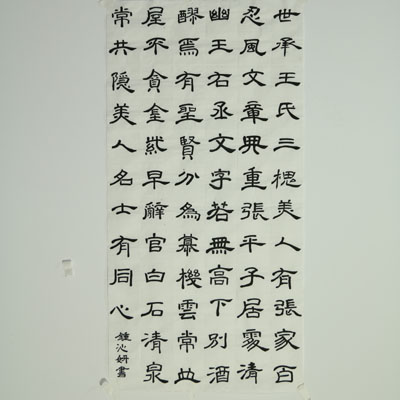 世承王氏三槐美人有張家百
忍風文章典重張平子居處清
幽王右丞文字若無高下別酒
醪焉有聖賢分為慕機雲常並
屋不貪金紫早辭官白石清泉
常共隱美人名士有同心
鍾沁妍書